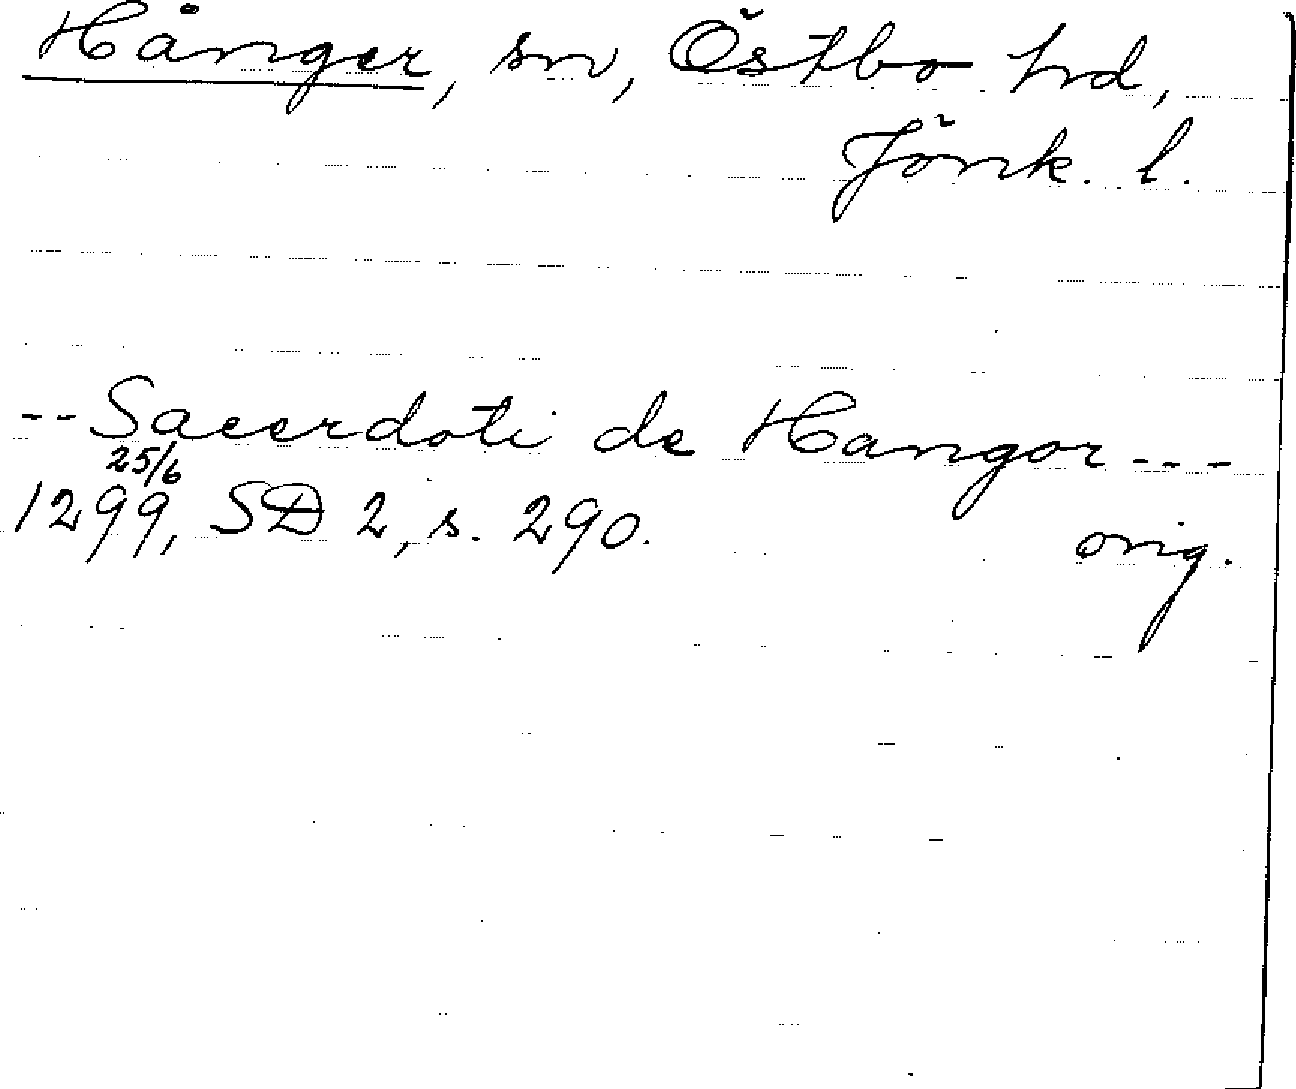 Hånger, sn, Östbo hd,
Jönk. l.
-- Sacerdoti de Hangor ---
25/6
1299, SD 2, s. 290. orig.